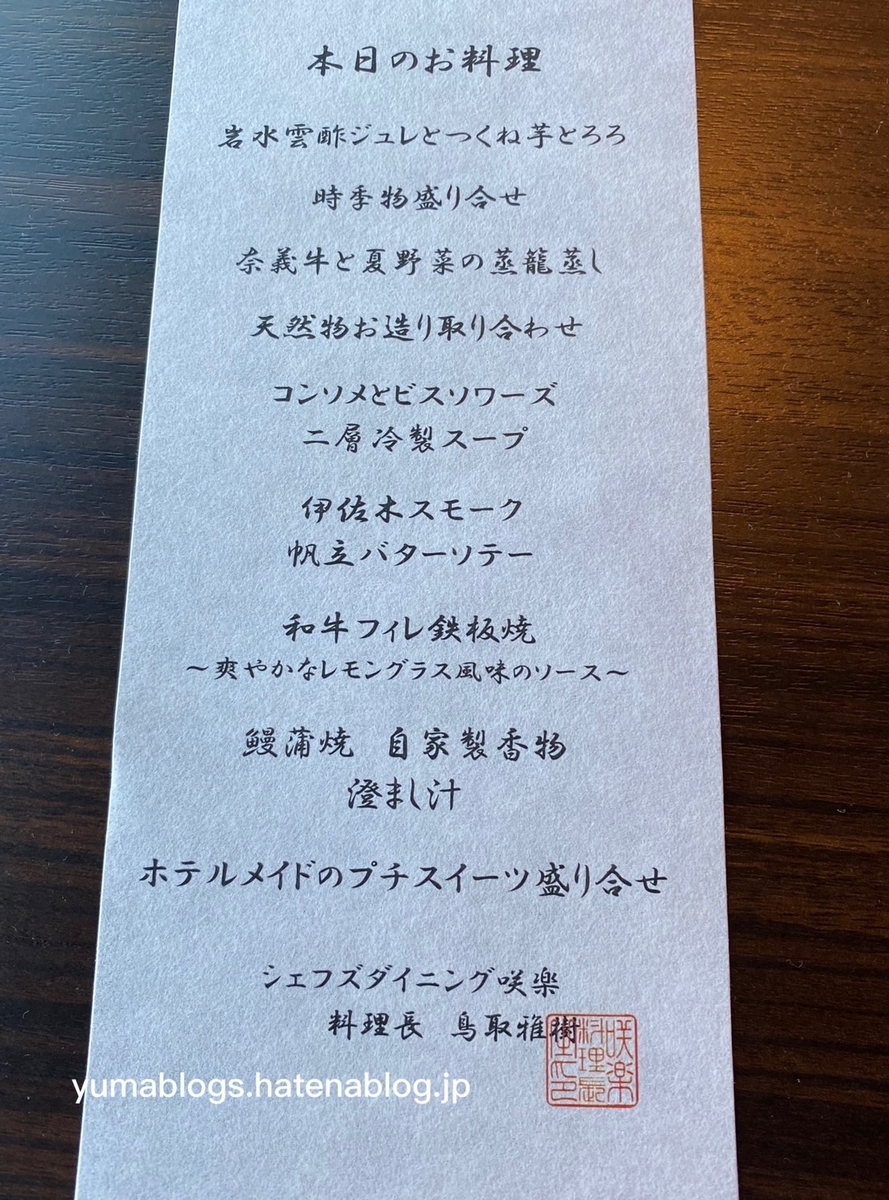 本日のお料理
岩水雲酢ジュレとつくね芋とろろ
時季物盛り合せ
奈義牛と夏野菜の蒸籠蒸し
天然物お造り取り合わせ
コンソメとビスソワーズ
二層冷製スープ
伊佐木スモーク
帆立バターソテー
和牛フィレ鉄板焼
～爽やかなレモングラス風味のソース～
鰻蒲焼 自家製香物
澄まし汁
ホテルメイドのプチスイーツ盛り合せ
シェフズダイニング咲楽
料理長 鳥取雅樹
咲楽
料理長
之印
yumablogs.hatenablog.jp